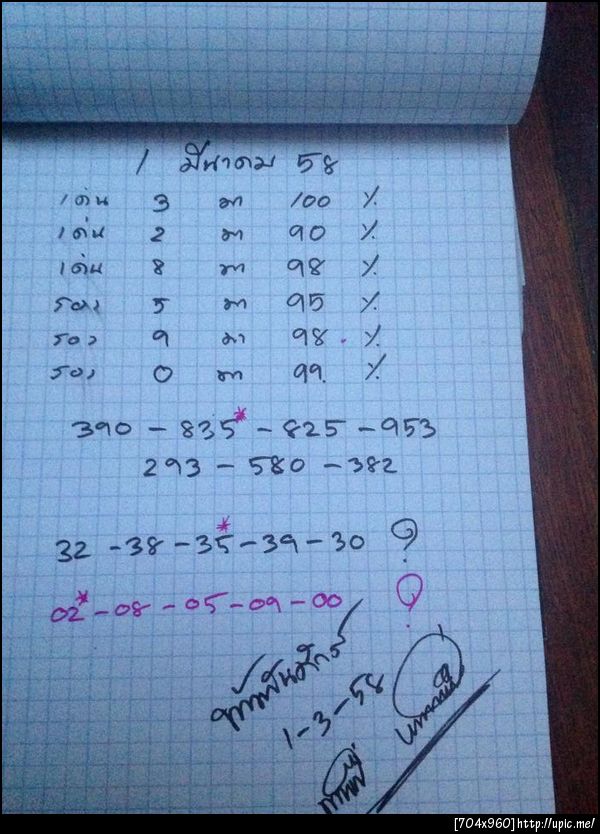 1 มีนาคม 58
เด่น 3 มา 100 %
เด่น 2 มา 90 %
เด่น 8 มา 98 %
รอง 5 มา 95 %
รอง 9 มา 98 %
รอง 0 มา 99 %
390 - 835* - 825 - 953
293 - 580 - 382
32 - 38 - 35* - 39 - 30 ?
02* - 08 - 05 - 09 - 00 ?
1-3-58
[704x960]http://upic.me/